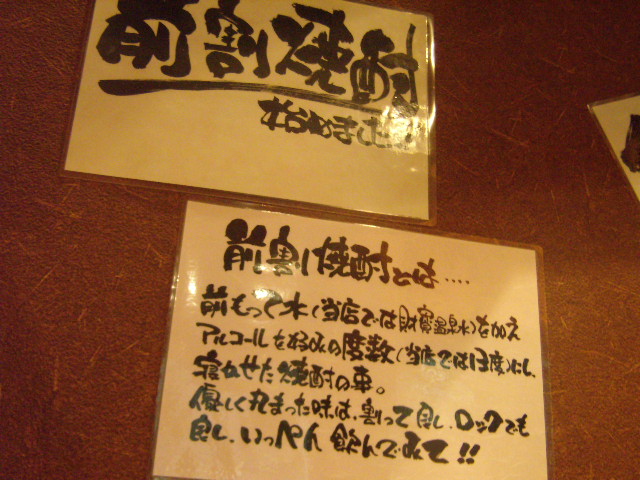 前割焼酎
始めました
前割り焼酎とは‥‥
前もって水(当店では財寶温泉水)を加え
アルコールを好みの度数(当店では13度)にし、
寝かせた焼酎の事。
優しく丸まった味は、割って良し、ロックでも
良し、いっぺん飲んでみて!!